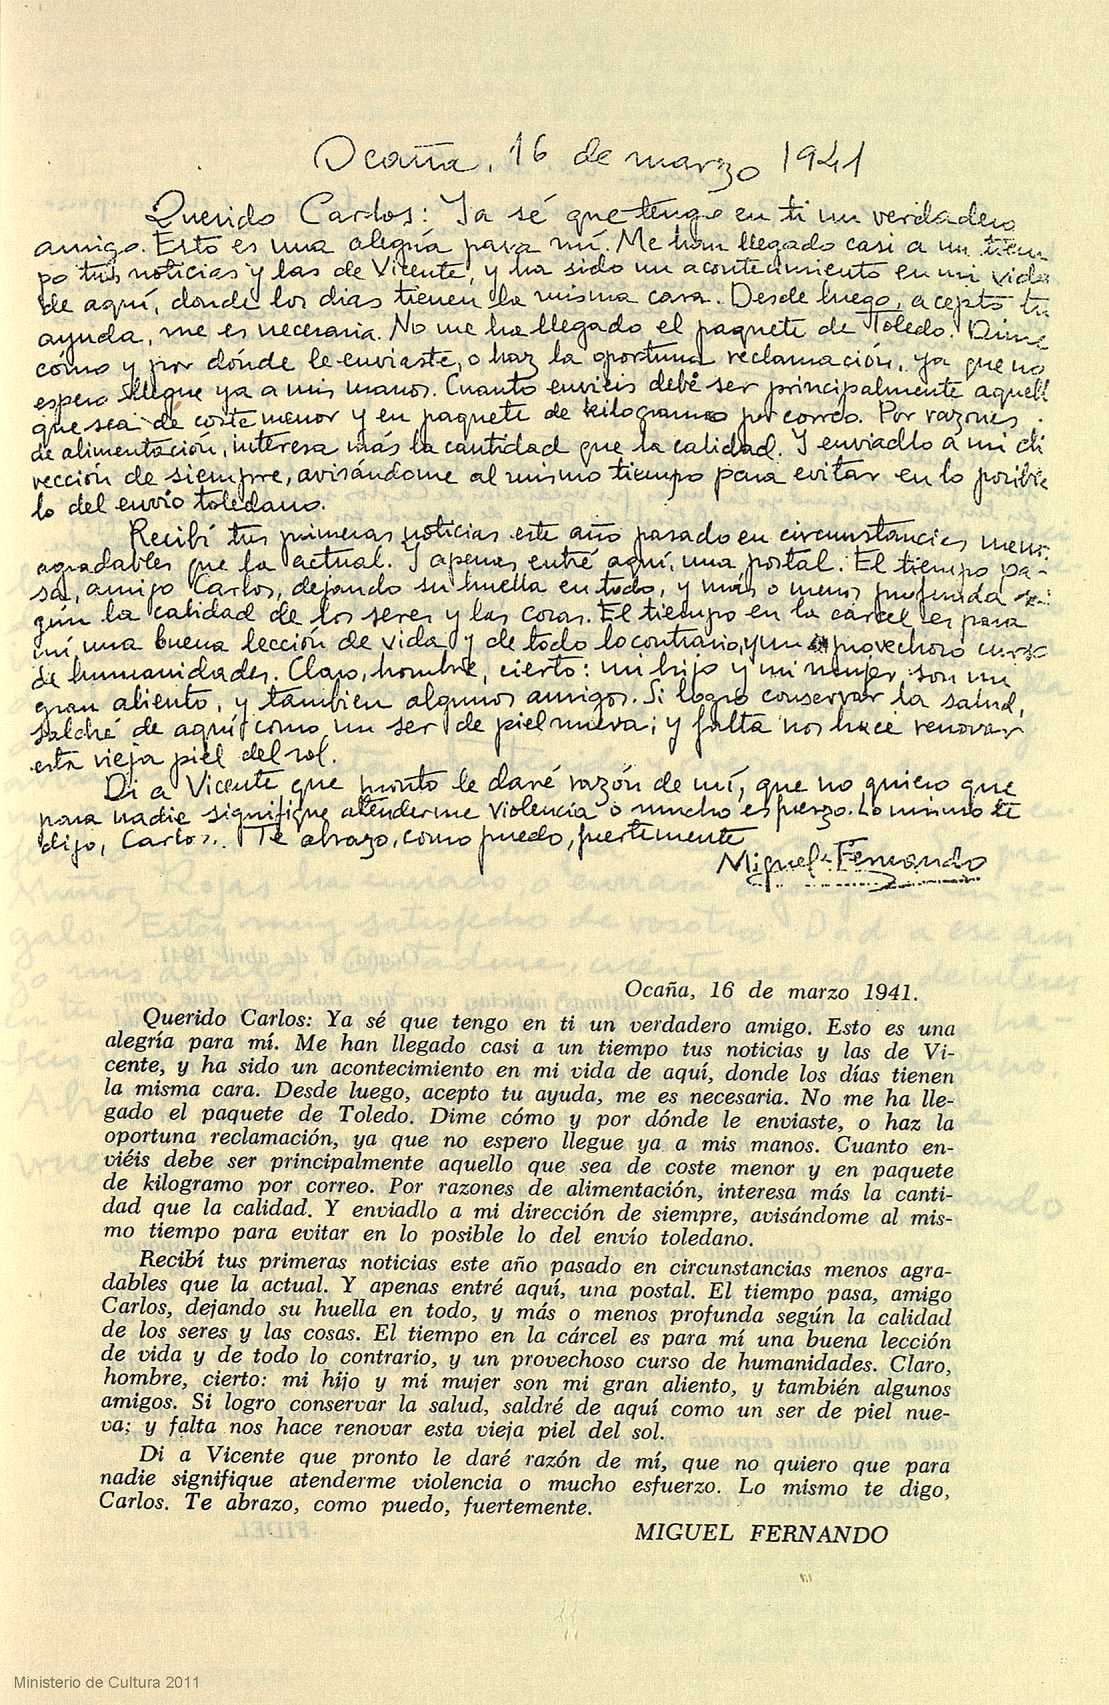 Ocaña, 16 de marzo 1941
Querido Carlos: Ya sé que tengo en ti un verdadero
amigo. Esto es una alegría para mí. Me han llegado casi a un tiem
po tus noticias y las de Vicente, y ha sido un acontecimiento en mi vida
de aquí, donde los dias tienen la misma cara. Desde luego, acepto tu
ayuda, me es necesaria. No me ha llegado el paquete de Toledo. Dime
cómo y por dónde le enviaste, o haz la oportuna reclamación, ya que no
espero llegue ya a mis manos. Cuanto enviéis debe ser principalmente aquell
que sea de coste menor y en paquete de kilogramo por correo. Por razones
de alimentación, interesa más la cantidad que la calidad. Y enviadlo a mi di
rección de siempre, avisándome al mismo tiempo para evitar en lo posible
lo del envío toledano.
Recibí tus primeras noticias este año pasado en circunstancias menos
agradables que la actual. Y apenas entré aquí, una postal. El tiempo pa-
sa, amigo Carlos, dejando su huella en todo, y más o menos profunda se
gún la calidad de los seres y las cosas. El tiempo en la cárcel es para
mí una buena lección de vida y de todo lo contrario, y un provechoso curso
de humanidades. Claro, hombre, cierto: mi hijo y mi mujer son mi
gran aliento, y tambien algunos amigos. Si logro conservar la salud,
saldré de aquí como un ser de piel nueva; y falta nos hace renovar
esta vieja piel del sol.
Di a Vicente que pronto le daré razón de mí, que no quiero que
para nadie signifique atenderme violencia o mucho esfuerzo. Lo mismo te
digo, Carlos. Te abrazo, como puedo, fuertemente
Miguel Fernando
Ocaña, 16 de marzo 1941.
Querido Carlos: Ya sé que tengo en ti un verdadero amigo. Esto es una
alegría para mí. Me han llegado casi a un tiempo tus noticias y las de Vi-
cente, y ha sido un acontecimiento en mi vida de aquí, donde los días tienen
la misma cara. Desde luego, acepto tu ayuda, me es necesaria. No me ha lle-
gado el paquete de Toledo. Dime cómo y por dónde le enviaste, o haz la
oportuna reclamación, ya que no espero llegue ya a mis manos. Cuanto en-
viéis debe ser principalmente aquello que sea de coste menor y en paquete
de kilogramo por correo. Por razones de alimentación, interesa más la canti-
dad que la calidad. Y enviadlo a mi dirección de siempre, avisándome al mis-
mo tiempo para evitar en lo posible lo del envío toledano.
Recibí tus primeras noticias este año pasado en circunstancias menos agra-
dables que la actual. Y apenas entré aquí, una postal. El tiempo pasa, amigo
Carlos, dejando su huella en todo, y más o menos profunda según la calidad
de los seres y las cosas. El tiempo en la cárcel es para mí una buena lección
de vida y de todo lo contrario, y un provechoso curso de humanidades. Claro,
hombre, cierto: mi hijo y mi mujer son mi gran aliento, y también algunos
amigos. Si logro conservar la salud, saldré de aquí como un ser de piel nue-
va; y falta nos hace renovar esta vieja piel del sol.
Di a Vicente que pronto le daré razón de mí, que no quiero que para
nadie signifique atenderme violencia o mucho esfuerzo. Lo mismo te digo,
Carlos. Te abrazo, como puedo, fuertemente.
MIGUEL FERNANDO
Ministerio de Cultura 2011